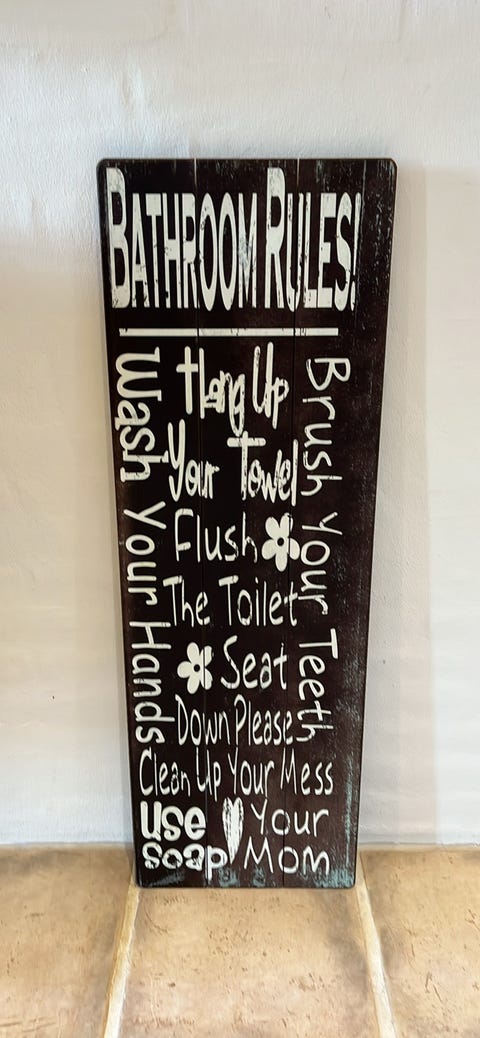 BATHROOM RULES!
Wash Your Hands
Hang Up
Your Towel
Brush Your Teeth
Flush
The Toilet
Seat
Down Please
Clean Up Your Mess
use
soap
Your
Mom